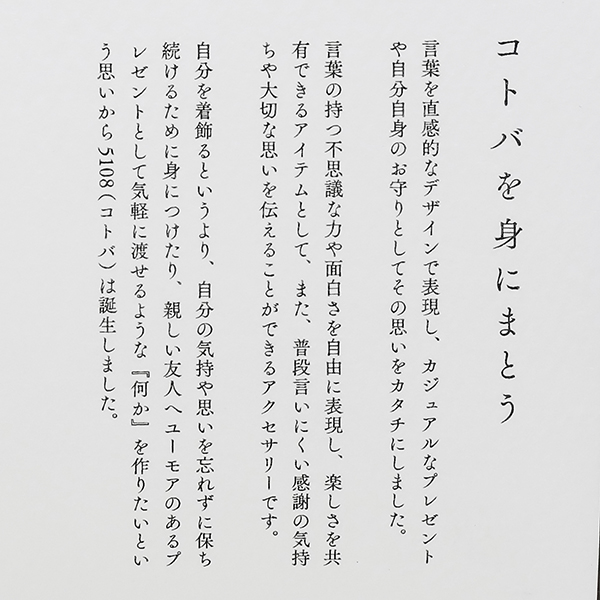 コトバを身にまとう
言葉を直感的なデザインで表現し、カジュアルなプレゼント
や自分自身のお守りとしてその思いをカタチにしました。
言葉の持つ不思議な力や面白さを自由に表現し、楽しさを共
有できるアイテムとして、また、普段言いにくい感謝の気持
ちや大切な思いを伝えることができるアクセサリーです。
自分を着飾るというより、自分の気持や思いを忘れずに保ち
続けるために身につけたり、親しい友人へユーモアのあるプ
レゼントとして気軽に渡せるような『何か』を作りたいとい
う思いから5108(コトバ)は誕生しました。